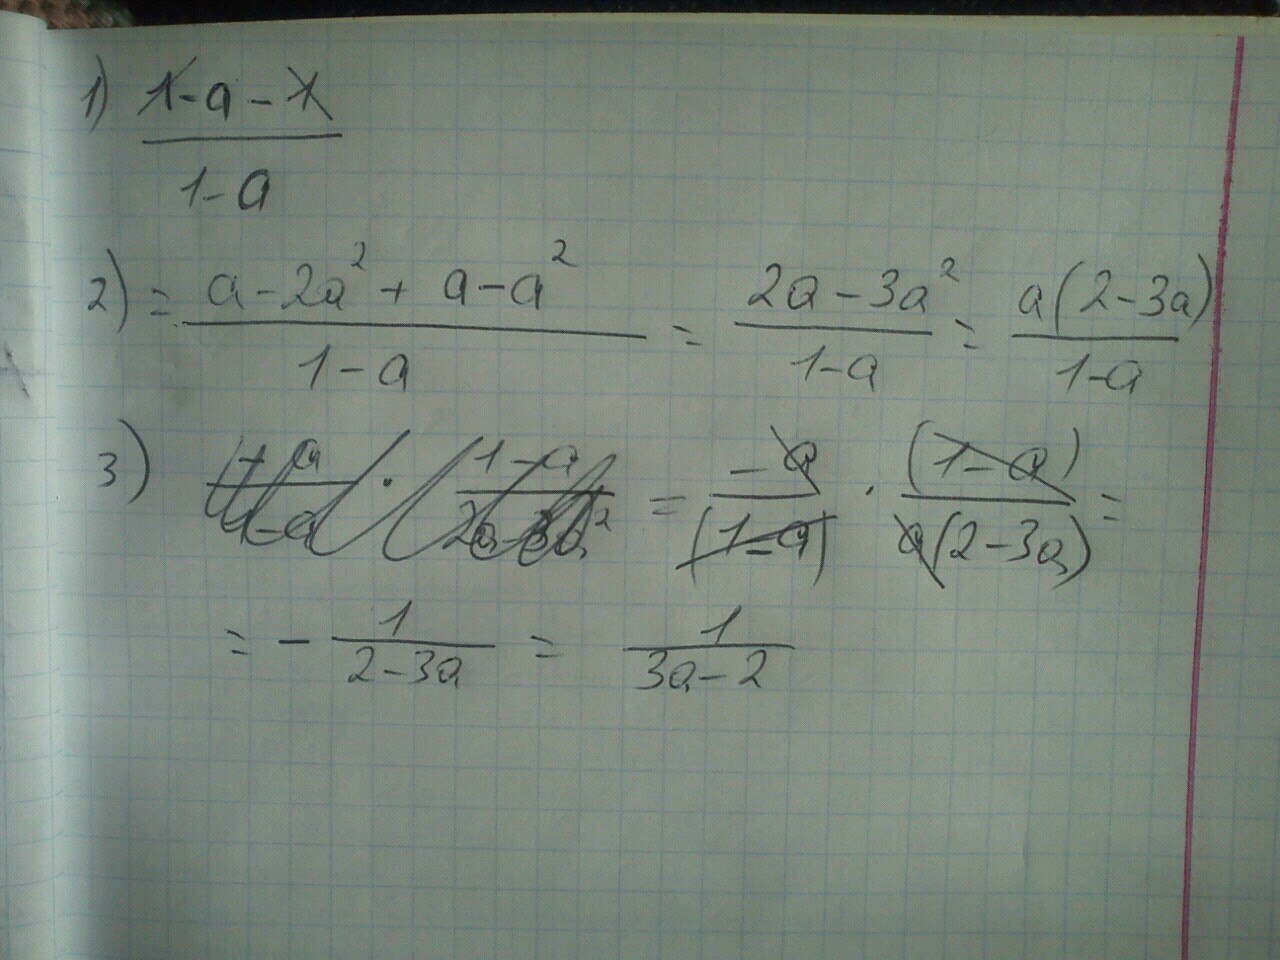 1) (1-a-1)/(1-a)
2) = (a-2a²+a-a²)/(1-a) = (2a-3a²)/(1-a) = a(2-3a)/(1-a)
3) = -a/(1-a) · (1-a)/(a(2-3a)) =
= - 1/(2-3a) = 1/(3a-2)